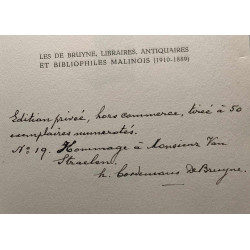 LES DE BRUYNE, LIBRAIRES, ANTIQUAIRES
ET BIBLIOPHILES MALINOIS (1910-1889)
Edition privée, hors commerce, tirée à 50
exemplaires numerotés.
No 19. Hommage à Monsieur Van
Straelen.
h. Cordemans De Bruyne.